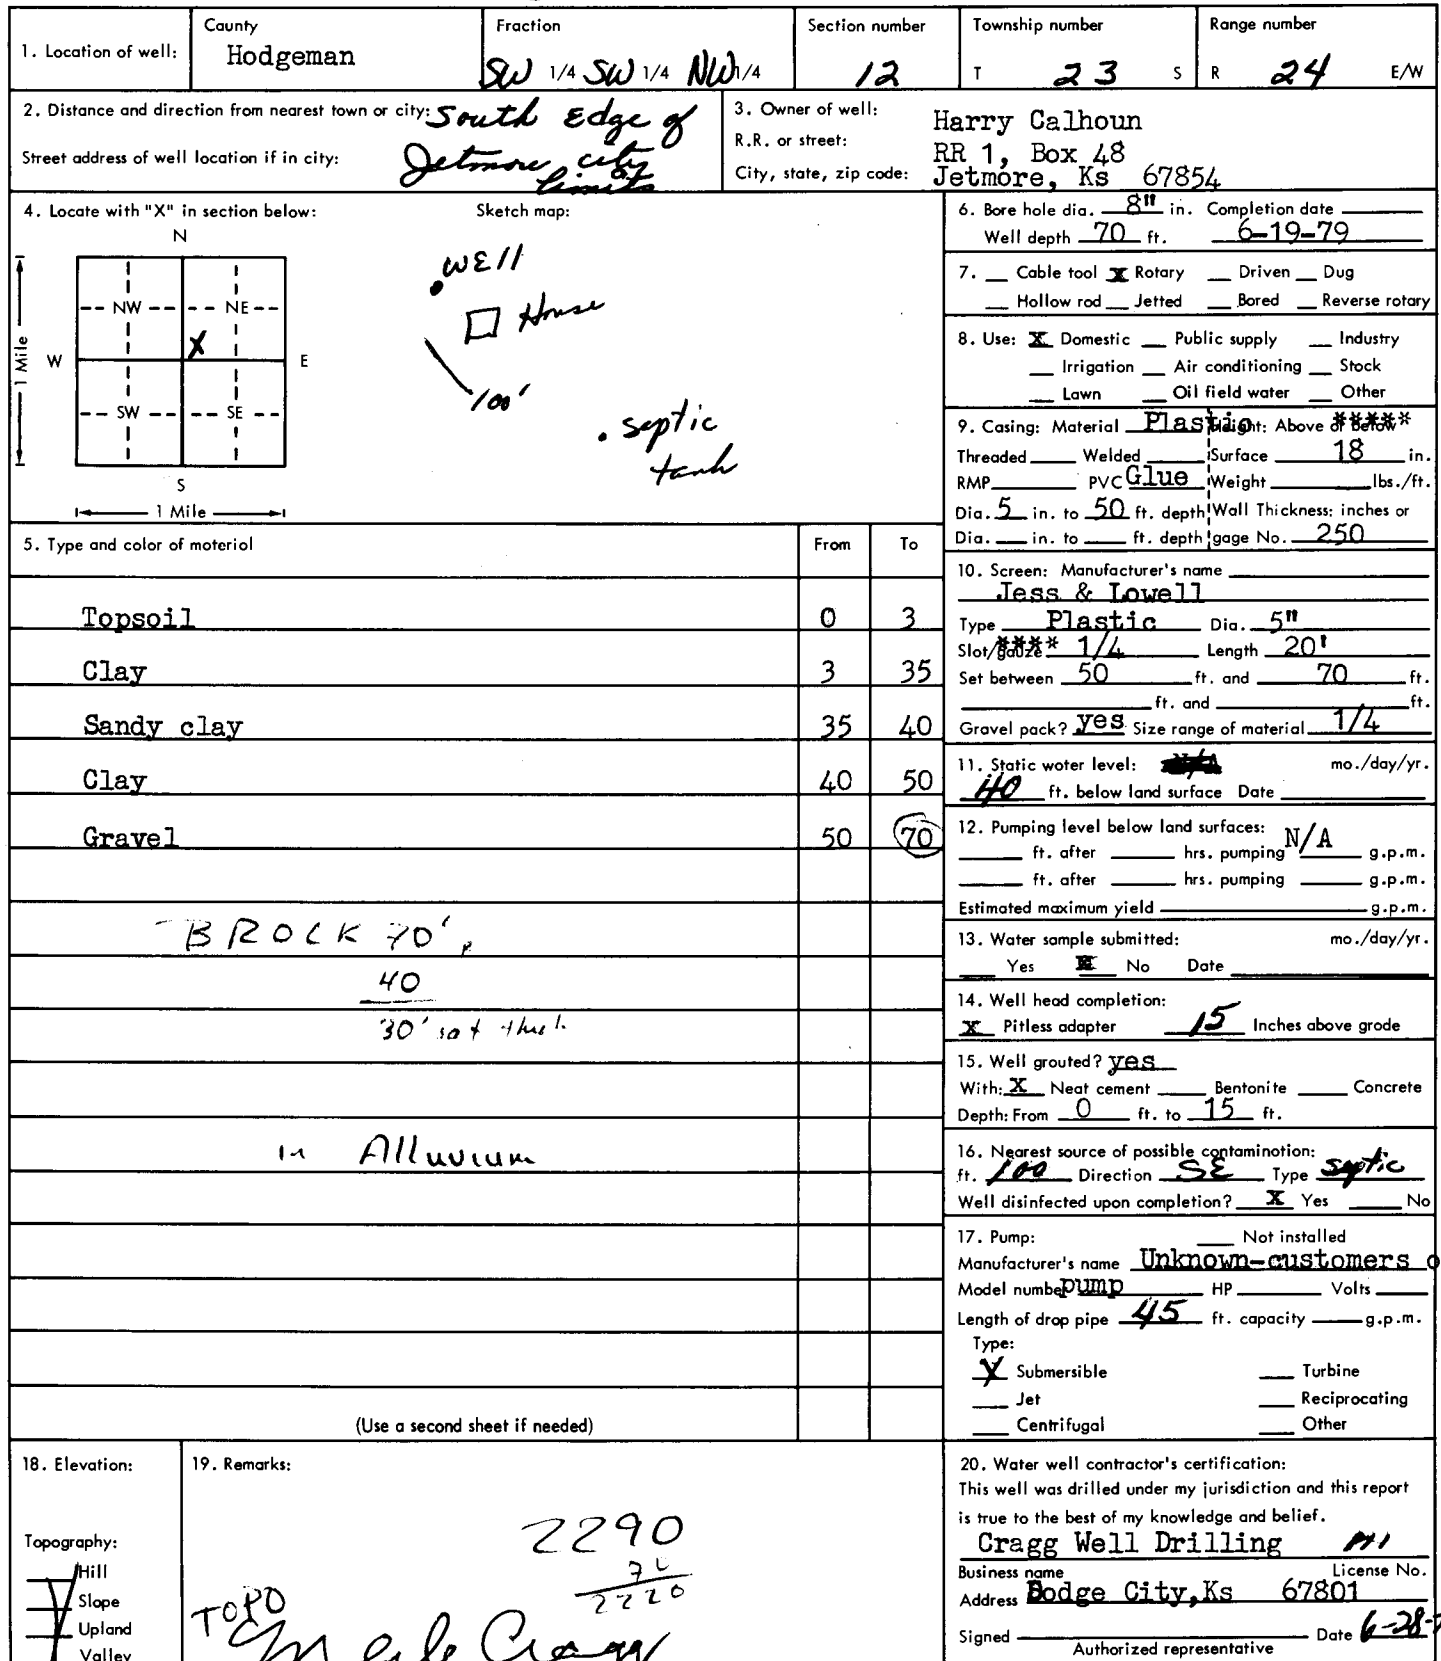 1. Location of well:
County
Hodgeman
Fraction
SW 1/4 SW 1/4 NW 1/4
Section number
12
Township number
T 23 S
Range number
R 24 E/W
2. Distance and direction from nearest town or city: South Edge of
Street address of well location if in city: Jetmore city
limits
3. Owner of well: Harry Calhoun
R.R. or street: RR 1, Box 48
City, state, zip code: Jetmore, Ks 67854
4. Locate with "X" in section below:
N
NW NE
X
W E
SW SE
S
1 Mile
1 Mile
Sketch map:
WELL
House
100'
septic
tank
5. Type and color of material From To
Topsoil 0 3
Clay 3 35
Sandy clay 35 40
Clay 40 50
Gravel 50 70
BROCK 70'
40
30' sat thick
in Alluvium
(Use a second sheet if needed)
6. Bore hole dia. 8" in. Completion date
Well depth 70 ft. 6-19-79
7. Cable tool X Rotary Driven Dug
Hollow rod Jetted Bored Reverse rotary
8. Use: X Domestic Public supply Industry
Irrigation Air conditioning Stock
Lawn Oil field water Other
9. Casing: Material Plastic Height: Above or below
Threaded Welded Surface 18 in.
RMP PVC Glue Weight lbs./ft.
Dia. 5 in. to 50 ft. depth Wall Thickness: inches or
Dia. in. to ft. depth gage No. 250
10. Screen: Manufacturer's name
Jess & Lowell
Type Plastic Dia. 5"
Slot/gauze 1/4 Length 20'
Set between 50 ft. and 70 ft.
ft. and ft.
Gravel pack? yes Size range of material 1/4
11. Static water level: mo./day/yr.
40 ft. below land surface Date
12. Pumping level below land surfaces: N/A
ft. after hrs. pumping g.p.m.
ft. after hrs. pumping g.p.m.
Estimated maximum yield g.p.m.
13. Water sample submitted: mo./day/yr.
Yes X No Date
14. Well head completion:
X Pitless adapter 15 Inches above grade
15. Well grouted? yes
With: X Neat cement Bentonite Concrete
Depth: From 0 ft. to 15 ft.
16. Nearest source of possible contamination:
ft. 100 Direction SE Type septic
Well disinfected upon completion? X Yes No
17. Pump: Not installed
Manufacturer's name Unknown-customers o
Model number pump HP Volts
Length of drop pipe 45 ft. capacity g.p.m.
Type:
X Submersible Turbine
Jet Reciprocating
Centrifugal Other
18. Elevation:
Topography:
Hill
Slope
Upland
Valley
19. Remarks:
2290
70
2220
TOPO
Cragg
20. Water well contractor's certification:
This well was drilled under my jurisdiction and this report
is true to the best of my knowledge and belief.
Cragg Well Drilling
Business name License No.
Address Dodge City, Ks 67801
Signed Date 6-28-
Authorized representative